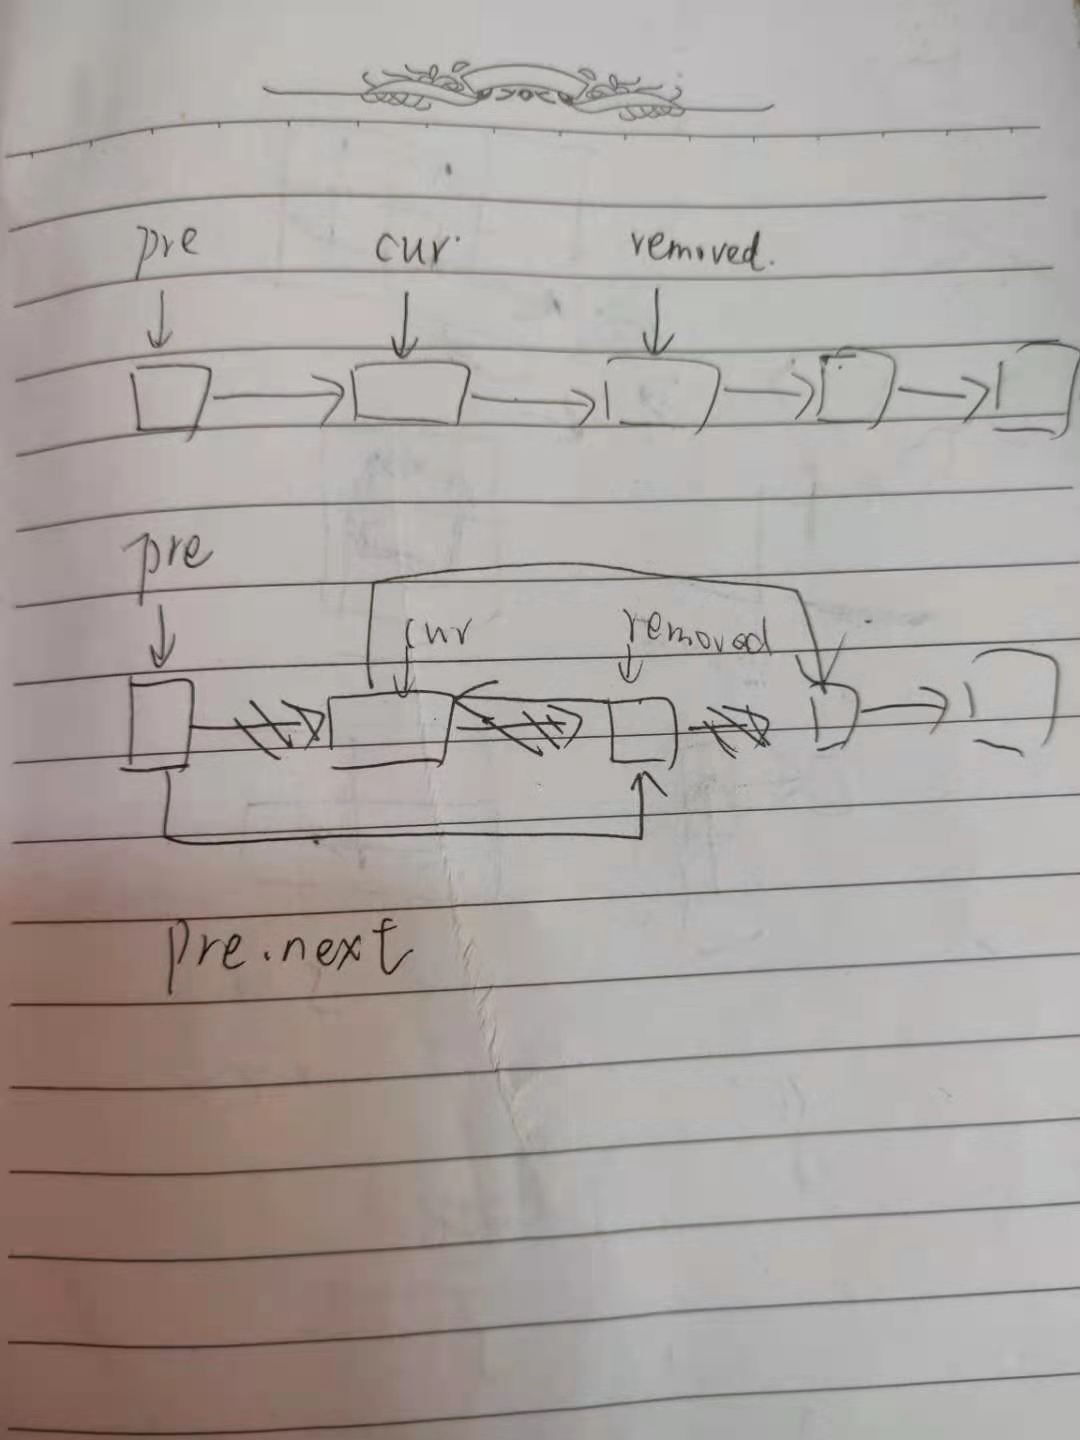 pre cur removed.
pre
cur removed
pre.next